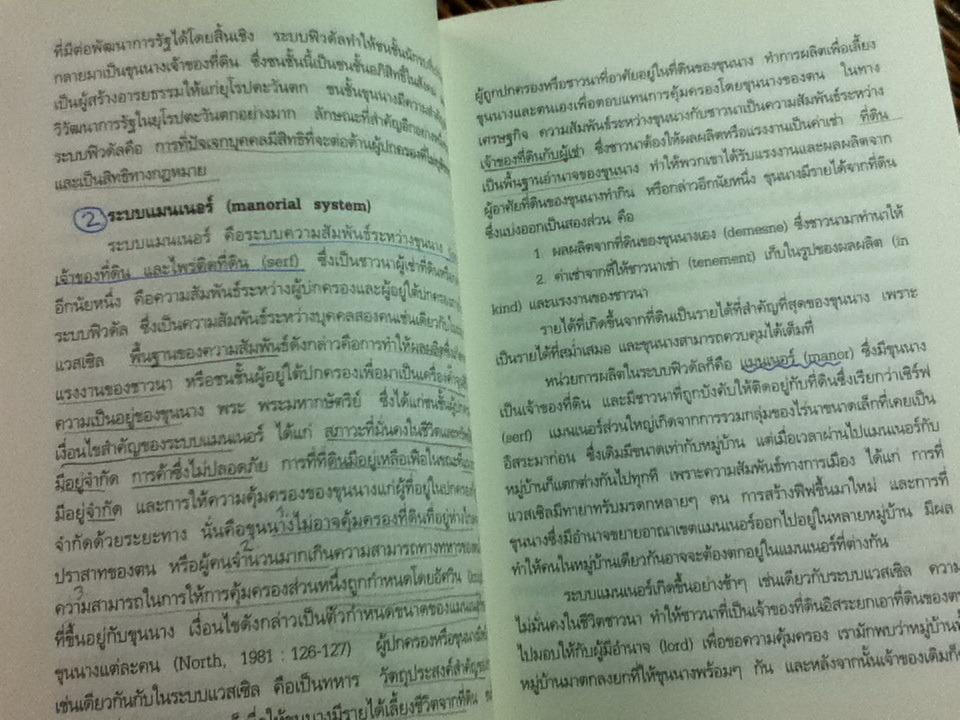 ที่มีต่อพัฒนาการรัฐได้โดยสิ้นเชิง ระบบฟิวดัลทำให้ชนชั้นนักรบ
กลายมาเป็นขุนนางเจ้าของที่ดิน ซึ่งชนชั้นนี้เป็นชนชั้นอภิสิทธิ์ในสังคม
เป็นผู้สร้างอารยธรรมให้แก่ยุโรปตะวันตก ชนชั้นขุนนางมีความสำคัญ
วิวัฒนาการรัฐในยุโรปตะวันตกอย่างมาก ลักษณะที่สำคัญอีกอย่างหนึ่ง
ระบบฟิวดัลคือ การที่ปัจเจกบุคคลมีสิทธิที่จะต่อต้านผู้ปกครองที่ไม่
และเป็นสิทธิทางกฎหมาย
2 ระบบแมนเนอร์ (manorial system)
ระบบแมนเนอร์ คือระบบความสัมพันธ์ระหว่างขุนนาง
เจ้าของที่ดิน และไพร่ติดที่ดิน (serf) ซึ่งเป็นชาวนาผู้เช่าที่ดิน
อีกนัยหนึ่ง คือความสัมพันธ์ระหว่างผู้ปกครองและผู้อยู่ใต้ปกครอง
ระบบฟิวดัล ซึ่งเป็นความสัมพันธ์ระหว่างบุคคลสองคนเช่นเดียวกับ
แวสเซิล พื้นฐานของความสัมพันธ์ดังกล่าวคือการทำให้ผลผลิต
แรงงานของชาวนา หรือชนชั้นผู้อยู่ใต้ปกครองเพื่อมาเป็นเครื่อง
ความเป็นอยู่ของขุนนาง พระ พระมหากษัตริย์ ซึ่งได้แก่ชนชั้น
เงื่อนไขสำคัญของระบบแมนเนอร์ ได้แก่ สภาวะที่มั่นคงในชีวิต
มีอยู่จำกัด การค้าซึ่งไม่ปลอดภัย การที่ที่ดินมีอยู่เหลือเฟือในขณะที่
มีอยู่จำกัด และการให้ความคุ้มครองของขุนนางแก่ผู้ที่อยู่ในปกครอง
จำกัดด้วยระยะทาง นั่นคือขุนนางไม่อาจคุ้มครองที่ดินที่อยู่ห่างไกล
ปราสาทของตน หรือผู้คนจำนวนมากเกินความสามารถทางทหารของ
ความสามารถในการให้การคุ้มครองส่วนหนึ่งถูกกำหนดโดยอัศวิน
ที่ขึ้นอยู่กับขุนนาง เงื่อนไขดังกล่าวเป็นตัวกำหนดขนาดของแมนเนอร์
ขุนนางแต่ละคน (North, 1981 : 126-127) ผู้ปกครองหรือขุนนาง
เช่นเดียวกันกับในระบบแวสเซิล คือเป็นทหาร วัตถุประสงค์สำคัญ
ให้ขุนนางมีรายได้เลี้ยงชีวิตจากที่ดิน
ผู้ถูกปกครองหรือชาวนาที่อาศัยอยู่ในที่ดินของขุนนาง ทำการผลิตเพื่อเลี้ยง
ขุนนางและตนเองเพื่อตอบแทนการคุ้มครองโดยขุนนางของตน ในทาง
เศรษฐกิจ ความสัมพันธ์ระหว่างขุนนางกับชาวนาเป็นความสัมพันธ์ระหว่าง
เจ้าของที่ดินกับผู้เช่า ซึ่งชาวนาต้องให้ผลผลิตหรือแรงงานเป็นค่าเช่า ที่ดิน
เป็นพื้นฐานอำนาจของขุนนาง ทำให้พวกเขาได้รับแรงงานและผลผลิตจาก
ผู้อาศัยที่ดินของขุนนางทำกิน หรือกล่าวอีกนัยหนึ่ง ขุนนางมีรายได้จากที่ดิน
ซึ่งแบ่งออกเป็นสองส่วน คือ
1. ผลผลิตจากที่ดินของขุนนางเอง (demesne) ซึ่งชาวนามาทำนาให้
2. ค่าเช่าจากที่ให้ชาวนาเช่า (tenement) เก็บในรูปของผลผลิต (in
kind) และแรงงานของชาวนา
รายได้ที่เกิดขึ้นจากที่ดินเป็นรายได้ที่สำคัญที่สุดของขุนนาง เพราะ
เป็นรายได้ที่สม่ำเสมอ และขุนนางสามารถควบคุมได้เต็มที่
หน่วยการผลิตในระบบฟิวดัลก็คือ แมนเนอร์ (manor) ซึ่งมีขุนนาง
เป็นเจ้าของที่ดิน และมีชาวนาที่ถูกบังคับให้ติดอยู่กับที่ดินซึ่งเรียกว่าเซิร์ฟ
(serf) แมนเนอร์ส่วนใหญ่เกิดจากการรวมกลุ่มของไร่นาขนาดเล็กที่เคยเป็น
อิสระมาก่อน ซึ่งเดิมมีขนาดเท่ากับหมู่บ้าน แต่เมื่อเวลาผ่านไปแมนเนอร์กับ
หมู่บ้านก็แตกต่างกันไปทุกที เพราะความสัมพันธ์ทางการเมือง ได้แก่ การที่
แวสเซิลมีทายาทรับมรดกหลายๆ คน การสร้างฟีฟขึ้นมาใหม่ และการที่
ขุนนางซึ่งมีอำนาจขยายอาณาเขตแมนเนอร์ออกไปอยู่ในหลายหมู่บ้าน มีผล
ทำให้คนในหมู่บ้านเดียวกันอาจจะต้องตกอยู่ในแมนเนอร์ที่ต่างกัน
ระบบแมนเนอร์เกิดขึ้นอย่างช้าๆ เช่นเดียวกับระบบแวสเซิล ความ
ไม่มั่นคงในชีวิตชาวนา ทำให้ชาวนาที่เป็นเจ้าของที่ดินอิสระยกเอาที่ดินของตน
ไปมอบให้กับผู้มีอำนาจ (lord) เพื่อขอความคุ้มครอง เรามักพบว่าหมู่บ้าน
หมู่บ้านมาตกลงยกที่ให้ขุนนางพร้อมๆ กัน และหลังจากนั้นเจ้าของเดิมก็